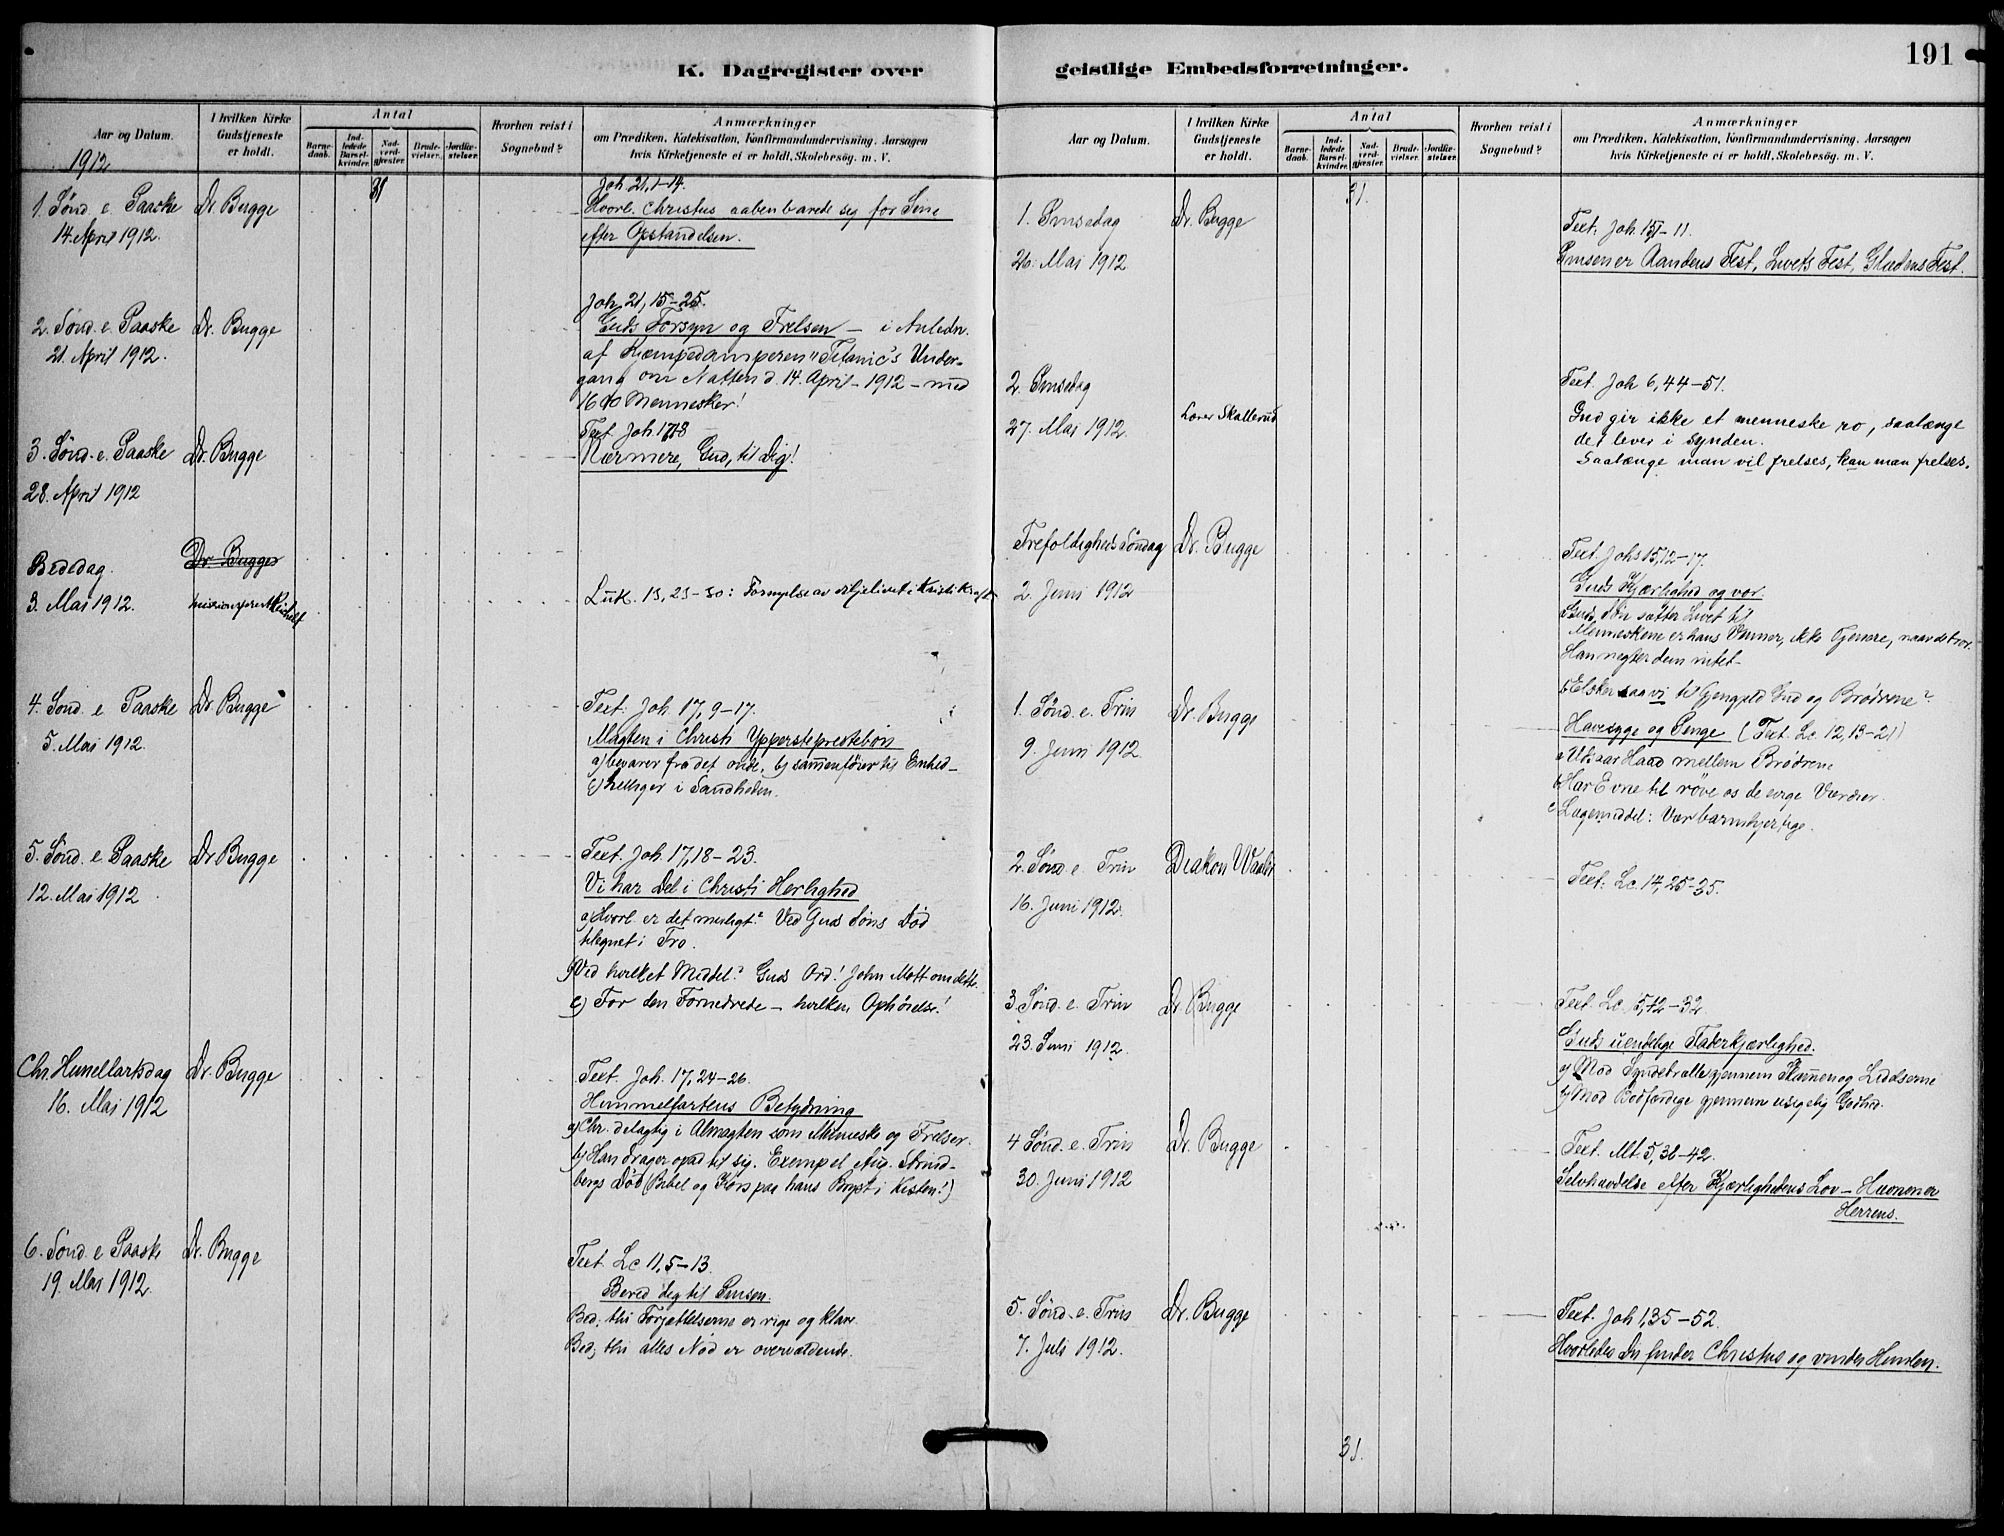 191
K. Dagregister over geistlige Embedsforretninger.
Aar og Datum.
I hvilken Kirke Gudstjeneste er holdt.
Antal
Barnedaab.
Indledede Barselkvinder.
Nadverdgjester.
Brudevielser.
Jordfæstelser.
Hvorhen reist i Sognebud?
Anmærkninger
om Prædiken, Katekisation, Konfirmandundervisning. Aarsagen
hvis Kirketjeneste ei er holdt, Skolebesøg. m. V.
1912
1. Sønd. e. Paaske Dr. Bugge
14. April 1912.
Joh. 21, 1-14.
Hvorl. Christus aabenbarede sig for Sine
efter Opstandelsen.
2. Sønd. e. Paaske Dr. Bugge
21. April 1912.
Joh. 21, 15-25.
Guds Forsyn og Frelsen - i Anledn.
af Kæmpedamperen "Titanic's Under-
gang om Natten d. 14. April - 1912 - med
Mennesker!
3. Sønd. e. Paaske Dr. Bugge
28. April 1912
Text Joh. 17
Nærmere, Gud, til Dig!
Bededag. Dr. Bugge
3. Mai 1912.
Luk. 13, 23-30: Fornyelse av viljelivet i Kristi Kraft
4. Sønd. e. Paaske Dr. Bugge
5. Mai 1912.
Text. Joh. 17, 9-17.
Magten i Christi Yppersteprestebøn
a) bevarer fra det onde. b) sammenfører til Enhed -
c) helliger i Sandheden.
5. Sønd. e. Paaske Dr. Bugge
12. Mai 1912
Text. Joh. 17, 18-23.
Vi har Del i Christi Herlighed
a) Hvorl. er det muligt? Ved Guds Søns Død
tilegnet i Tro.
b) Ved hvilket Middel? Guds Ord! John Mott om dette.
c) For den Fornedrede - hvilken Ophøielse!
Chr. Himelfartsdag Dr. Bugge
16. Mai 1912
Text. Joh. 17, 24-26.
Himmelfartens Betydning
a) Chr. delagtig i Almagten som Menneske og Frelser.
b) Han drager opad til sig. Exempel Aug. Strind-
bergs Død (Bibel og Kors paa hans Bryst i Kisten!)
6. Sønd. e. Paaske Dr. Bugge
19. Mai 1912.
Text. Lc 11, 5-13.
Bered dig til Pinsen.
Bed; thi Forjættelserne er rige og klare
Bed; thi alles Nød er overvældende.
Aar og Datum.
I hvilken Kirke Gudstjeneste er holdt.
Antal
Barnedaab.
Indledede Barselkvinder.
Nadverdgjester.
Brudevielser.
Jordfæstelser.
Hvorhen reist i Sognebud?
Anmærkninger
om Prædiken, Katekisation, Konfirmandundervisning. Aarsagen
hvis Kirketjeneste ei er holdt, Skolebesøg. m. V.
31.
1. Pinsedag Dr. Bugge
26. Mai 1912
Text: Joh. 15, 1-11.
Pinsen er Aandens Fest, Livets Fest, Glædens Fest.
2. Pinsedag Lærer Skallerud
27. Mai 1912.
Text. Joh 6, 44-51.
Gud gir ikke et menneske ro, saalænge
det lever i synden.
Saalænge man vil frelses, kan man frelses.
Trefoldigheds Søndag Dr. Bugge
2. Juni 1912
Text. Joh 15, 12-17.
Guds Kjærlighed og vor.
a) Guds Søn sætter Livet til
Menneskene er hans Venner, ikke Tjenere, naar de tror
Han negter dem intet -
b) Elsker saa vi til Gjengjeld Gud og Brødrene?
1. Sønd. e. Trin Dr. Bugge
9. Juni 1912
Havesyge og Penge (Text. Lc. 12, 13-21)
a) Udsaar Had mellem Brødrene
b) Har Evne til røve os de evige Værdier.
c) Lægemiddel: Vær barmhjertige.
2. Sønd. e. Trin Diakon
16. Juni 1912.
Text: Lc. 14, 25-35.
3. Sønd. e. Trin Dr. Bugge
23. Juni 1912.
Text. Lc.
Guds uendelige Faderkjærlighed.
a) Mod Syndetrælle gjennem Skammen og Lidelserne
b) Mod Bodfærdige gjennem usigelig Godhed.
4 Sønd. e. Trin Dr. Bugge
30. Juni 1912
Text. Mt. 5, 38-42.
Selvhævdelse efter Kjærlighedens Lov - Hævnen er
Herrens.
5. Sønd. e. Trin Dr. Bugge
7. Juli 1912.
Text. Joh 1, 35-52.
Hvorledes Du finder Christus og vinder Himlen.
31.